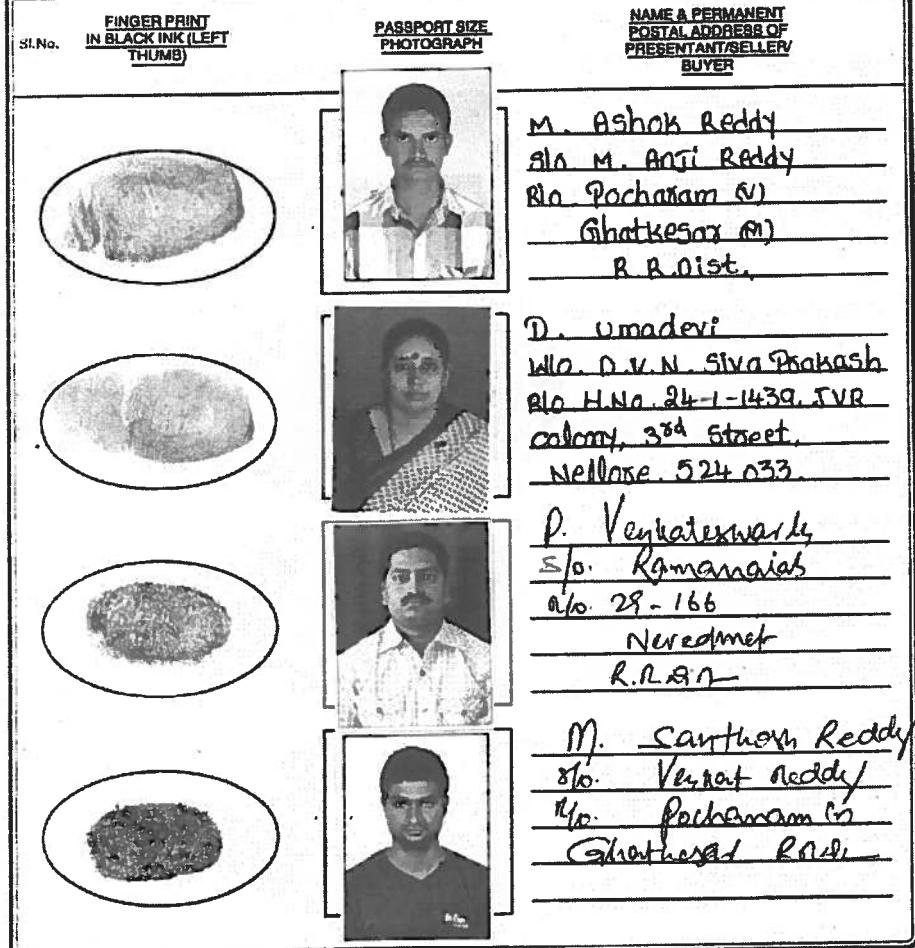 Sl.No.
FINGER PRINT
IN BLACK INK (LEFT
THUMB)
PASSPORT SIZE
PHOTOGRAPH
NAME & PERMANENT
POSTAL ADDRESS OF
PRESENTANT/SELLER/
BUYER
M. Ashok Reddy
S/o M. Anji Reddy
R/o Pocharam (V)
Ghatkesar (M)
R.R.Dist.
D. Umadevi
W/o. D.V.N. Siva Prakash
R/o H.No. 24-1-1439, JVR
colony, 3rd Street,
Nellore. 524 033.
P. Venkateswarlu
S/o. Ramanaiah
R/o. 29-166
Neredmet
M. Santhosh Reddy
S/o. Venkat Reddy
R/o. Pocharam
Ghatkesar